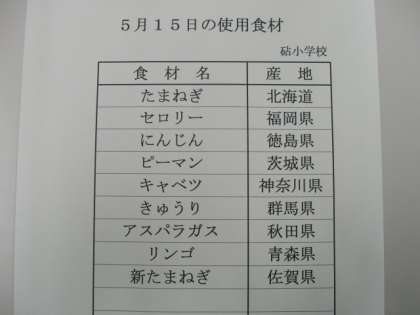 5月15日の使用食材
砧小学校
食 材 名 産 地
たまねぎ 北海道
セロリー 福岡県
にんじん 徳島県
ピーマン 茨城県
キャベツ 神奈川県
きゅうり 群馬県
アスパラガス 秋田県
リンゴ 青森県
新たまねぎ 佐賀県